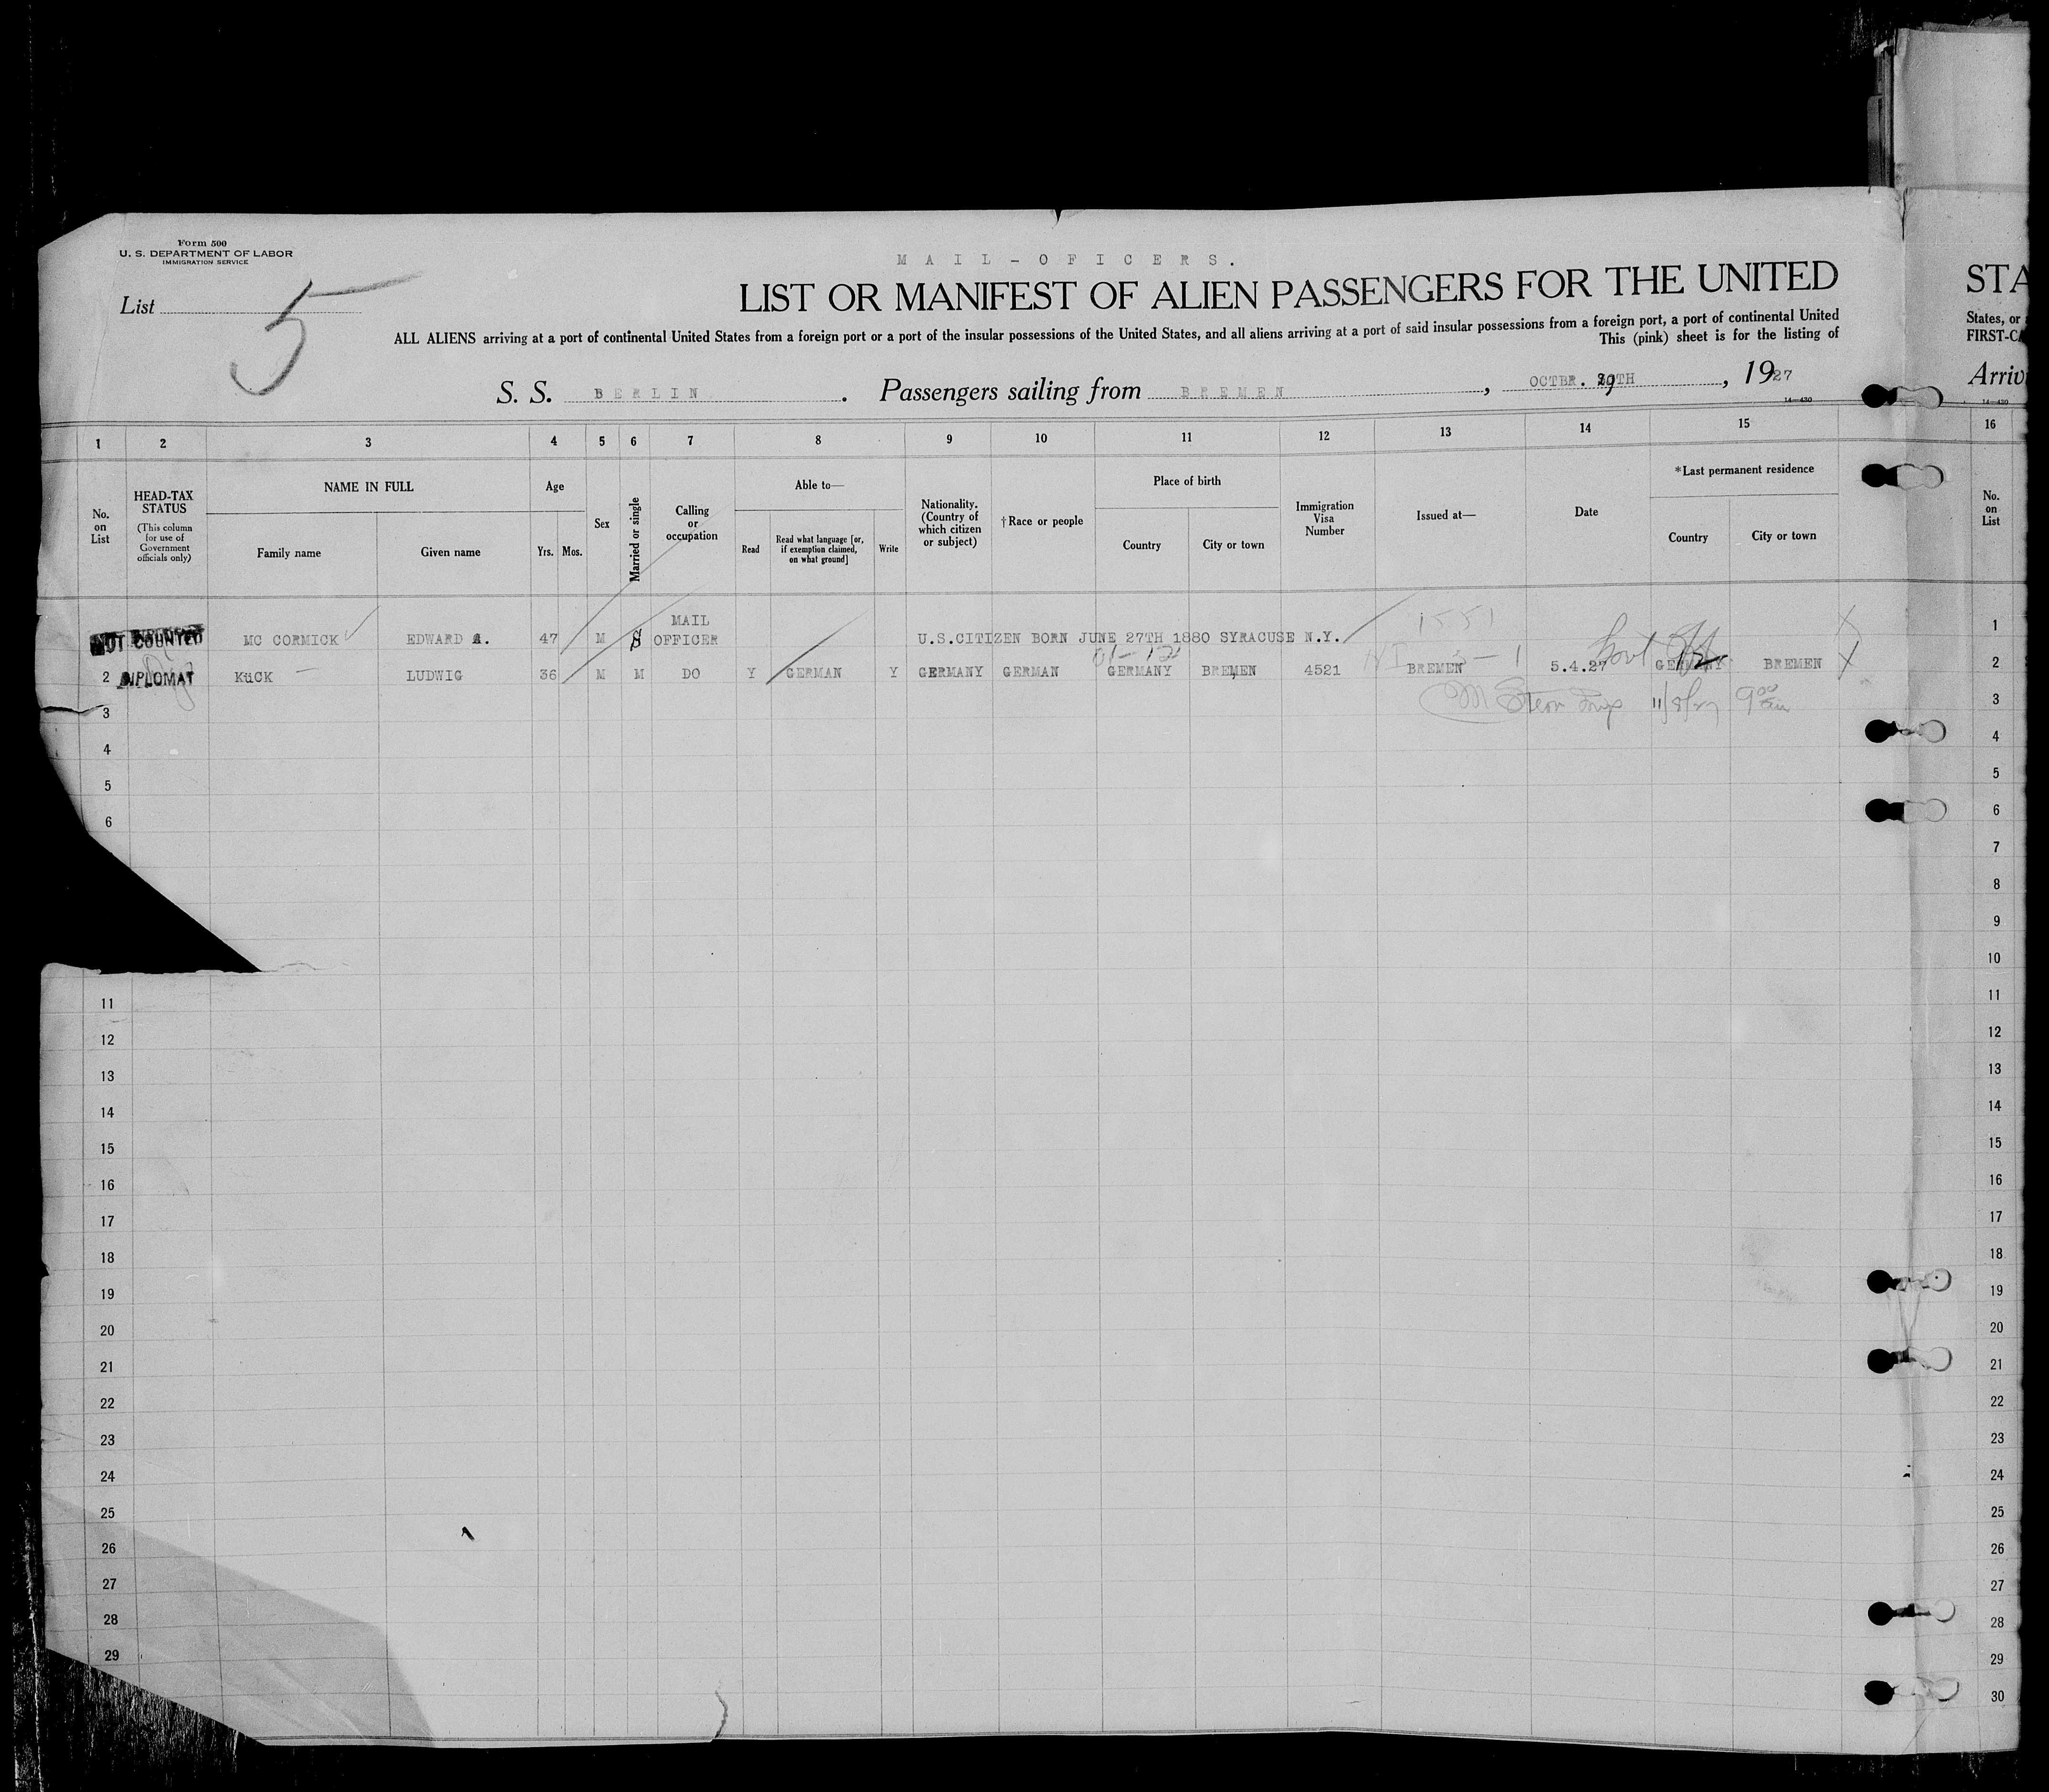 Form 500
U. S. DEPARTMENT OF LABOR
IMMIGRATION SERVICE
MAIL-OFICERS.
List 5
LIST OR MANIFEST OF ALIEN PASSENGERS FOR THE UNITED
STA
ALL ALIENS arriving at a port of continental United States from a foreign port or a port of the insular possessions of the United States, and all aliens arriving at a port of said insular possessions from a foreign port, a port of continental United
States, or
This (pink) sheet is for the listing of
FIRST-CA
S. S. BERLIN. Passengers sailing from BREMEN, OCTBR. TH, 1927
Arriv
14—430
14—430
1 2 3 4 5 6 7 8 9 10 11 12 13 14 15 16
No. on List
HEAD-TAX STATUS
(This column for use of Government officials only)
NAME IN FULL
Family name
Given name
Age
Yrs.
Mos.
Sex
Married or single
Calling or occupation
Able to—
Read
Read what language [or, if exemption claimed, on what ground]
Write
Nationality. (Country of which citizen or subject)
†Race or people
Place of birth
Country
City or town
Immigration Visa Number
Issued at—
Date
*Last permanent residence
Country
City or town
No. on List
NOT COUNTED MC CORMICK EDWARD A. 47 M S MAIL OFFICER U.S.CITIZEN BORN JUNE 27TH 1880 SYRACUSE N.Y. 1551 1
Govt Off
2 DIPLOMAT KüCK LUDWIG 36 M M DO Y GERMAN Y GERMANY GERMAN GERMANY BREMEN 4521 BREMEN 5.4.27 GERMANY BREMEN 2
3 11/8/27 9 00 am 3
4 4
5 5
6 6
7
8
9
10
11 11
12 12
13 13
14 14
15 15
16 16
17 17
18 18
19 19
20 20
21 21
22 22
23 23
24 24
25 25
26 26
27 27
28 28
29 29
30